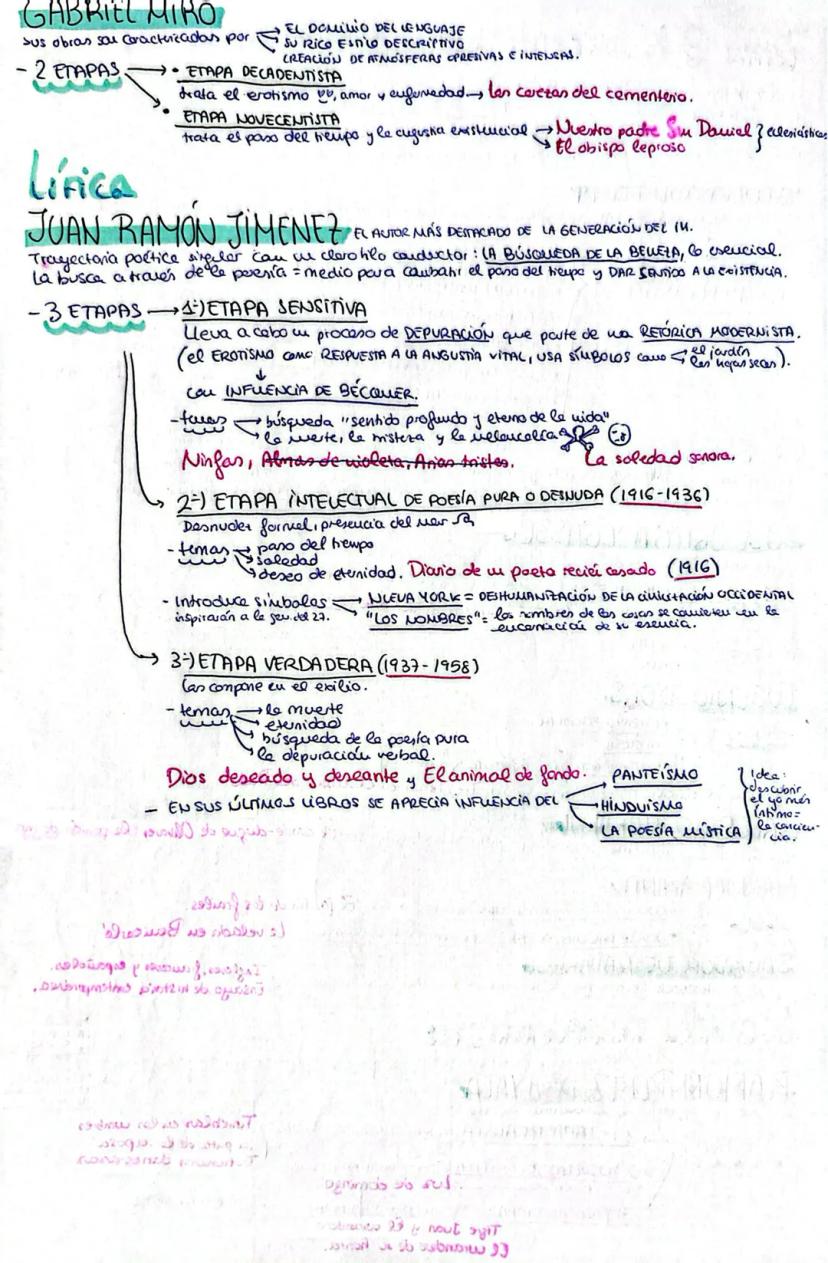 GABRIEL MIRÓ
sus obras son caracterizadas por → EL DOMINIO DEL LENGUAJE
SU RICO ESTILO DESCRIPTIVO
CREACIÓN DE ATMÓSFERAS OPRESIVAS E INTENSAS.
- 2 ETAPAS → • ETAPA DECADENTISTA
trata el erotismo, amor y enfermedad → Las cerezas del cementerio.
• ETAPA NOVECENTISTA
trata el paso del tiempo y la angustia existencial → Nuestro padre San Daniel } eclesiásticas
El obispo leproso
Lírica
JUAN RAMÓN JIMENEZ EL AUTOR MÁS DESTACADO DE LA GENERACIÓN DEL 14.
Trayectoria poética singular con un claro hilo conductor: LA BÚSQUEDA DE LA BELLEZA, lo esencial.
La busca a través de la poesía = medio para combatir el paso del tiempo y DAR SENTIDO A LA EXISTENCIA.
- 3 ETAPAS → 1º) ETAPA SENSITIVA
Lleva a cabo un proceso de DEPURACIÓN que parte de una RETÓRICA MODERNISTA.
(el EROTISMO como RESPUESTA A LA ANGUSTIA VITAL, USA SÍMBOLOS como < el jardín
las hojas secas).
↓
con INFLUENCIA DE BÉCQUER.
- temas → búsqueda "sentido profundo y eterno de la vida"
→ la muerte, la misteria y la melancolía
Ninfas, Almas de violeta, Arias tristes. La soledad sonora.
2º-) ETAPA INTELECTUAL DE POESÍA PURA O DESNUDA (1916-1936)
Desnudez formal, presencia del mar
- temas → paso del tiempo
→ soledad
→ deseo de eternidad. Diario de un poeta recién casado (1916)
- Introduce símbolos → NUEVA YORK = DESHUMANIZACIÓN DE LA CIVILIZACIÓN OCCIDENTAL
inspirarán a la gen. del 27. → "LOS NOMBRES" = los nombres de las cosas se convierten en la
encarnación de su esencia.
3º-) ETAPA VERDADERA (1937-1958)
las compone en el exilio.
- temas → la muerte
→ eternidad
→ búsqueda de la poesía pura
→ la depuración verbal.
Dios deseado y deseante y El animal de fondo.
- EN SUS ÚLTIMOS LIBROS SE APRECIA INFLUENCIA DEL → PANTEÍSMO
→ HINDUÍSMO
→ LA POESÍA MÍSTICA
Idea:
descubrir
el yo más
íntimo =
la concien-
cia.